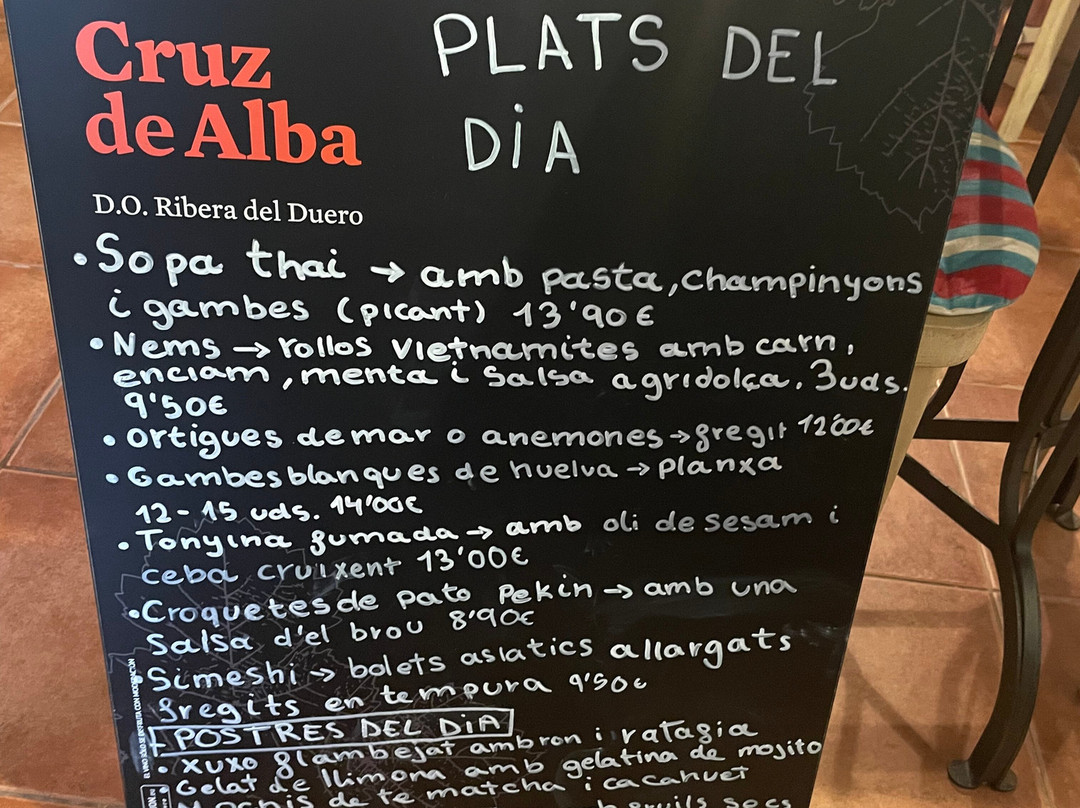 Cruz
de Alba
D.O. Ribera del Duero
PLATS DEL
DIA
• Sopa thai → amb pasta, champinyons
i gambes (picant) 13'90€
• Nems → rollos vietnamites amb carn,
enciam, menta i salsa agridolça. 3uds.
9'50€
• ortigues de mar o anemones → fregit 12'00€
• Gambes blanques de huelva → planxa
12-15 uds. 14'00€
• Tonyina fumada → amb oli de sesam i
ceba cruixent 13'00€
• Croquetes de pato Pekin → amb una
salsa d'el brou 8'90€
• Simeshi → bolets asiatics allargats
fregits en tempura 9'50€
POSTRES DEL DIA
• xuxo flambejat amb ron i ratafia
• Gelat de llimona amb gelatina de mojito
Mochis de te matcha i cacahuet
secs
EL VINO SÓLO SE DISFRUTA CON MODERACIÓN